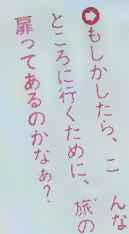 もしかしたら、こんな
ところに行くために、旅の
扉ってあるのかなぁ?